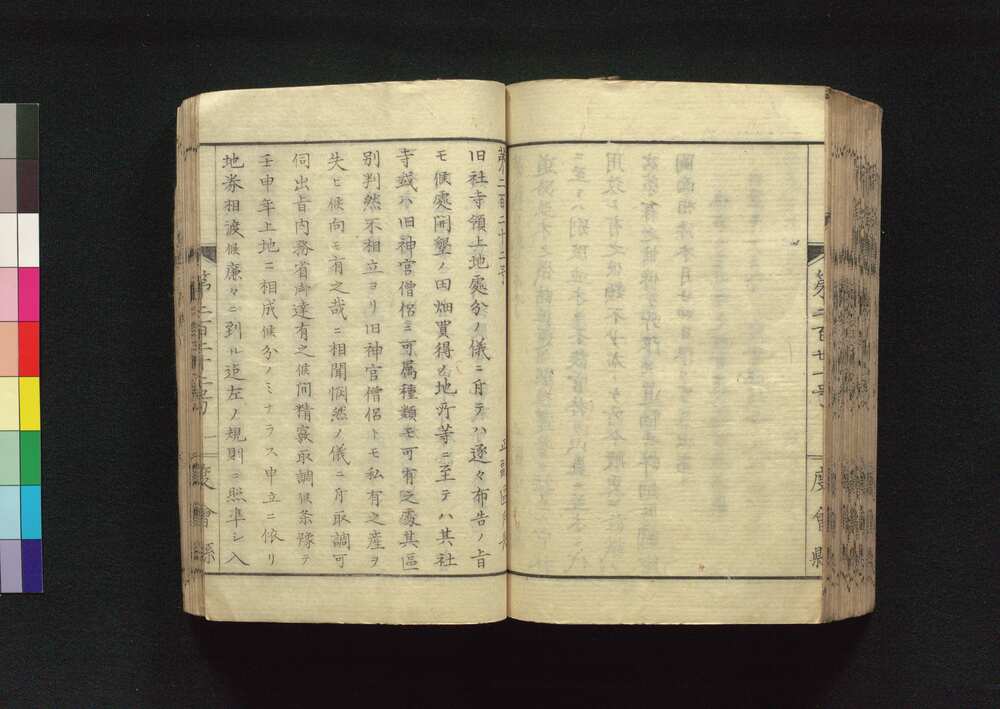 第二百廿一号
度會縣
第二百二十二号
旧社寺領上地處分ノ儀ニ付テハ逐々布告ノ旨
モ候處開墾ノ田畑買得ノ地所等ニ至テハ其社
寺或ハ旧神官僧侶ニ可属種類モ可有之處其區
別判然不相立ヨリ旧神官僧侶トモ私有之産ヲ
失ヒ候向モ有之哉ニ相聞悯然ノ儀ニ付取調可
伺出旨内務省御達有之候间精寔取調候条豫テ
壬申年上地ニ相成候分ノミナラス申立ニ依リ
地券相渡候廉々ニ到ル迄左ノ規則ニ照準シ入
第二百二十二号
度會縣